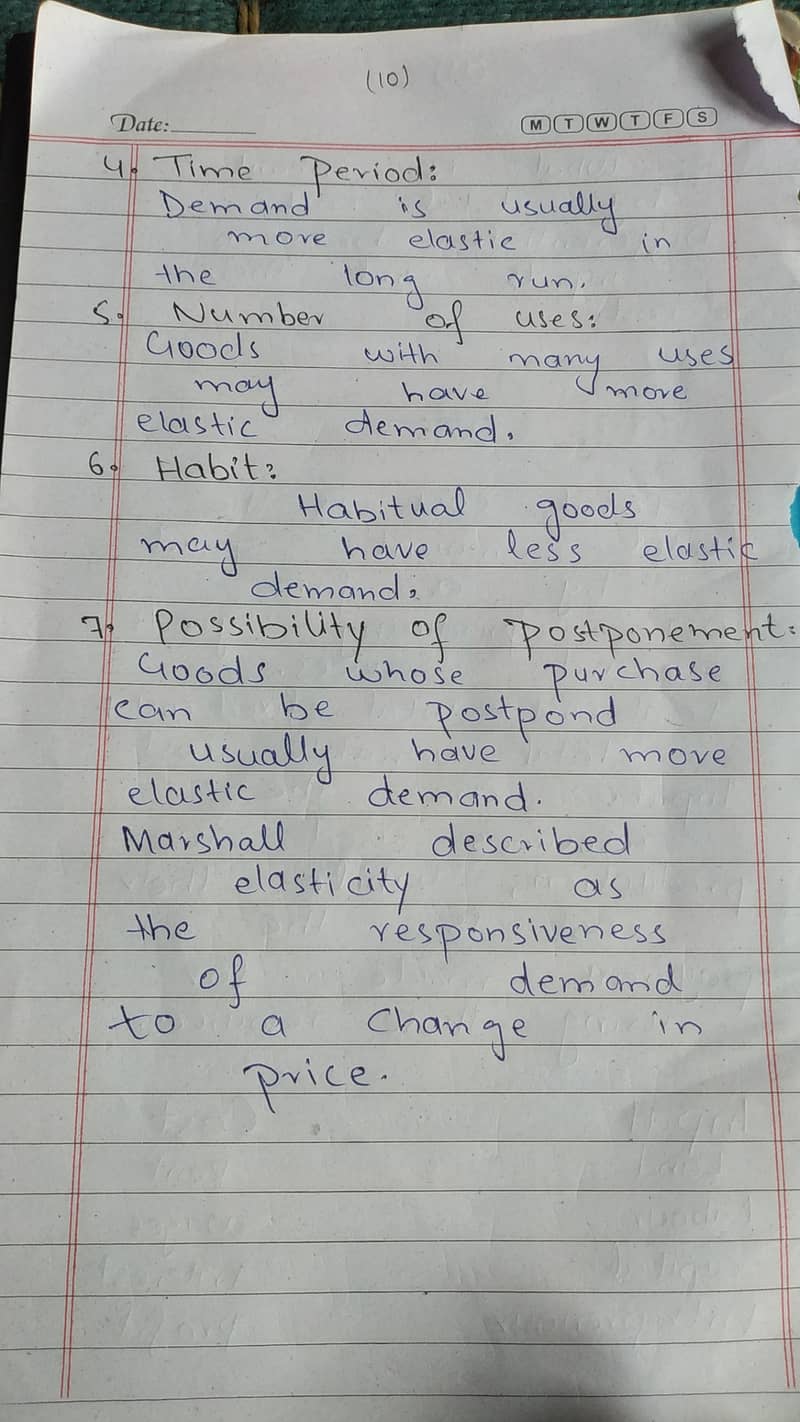 (10)
Date: M T W T F S
4. Time Period:
Demand is usually
more elastic in
the long run.
5. Number of uses:
Goods with many uses
may have more
elastic demand.
6. Habit:
Habitual goods
may have less elastic
demand.
7. Possibility of Postponement:
Goods whose purchase
can be postpond
usually have more
elastic demand.
Marshall described
elasticity as
the responsiveness
of demand
to a change in
price.